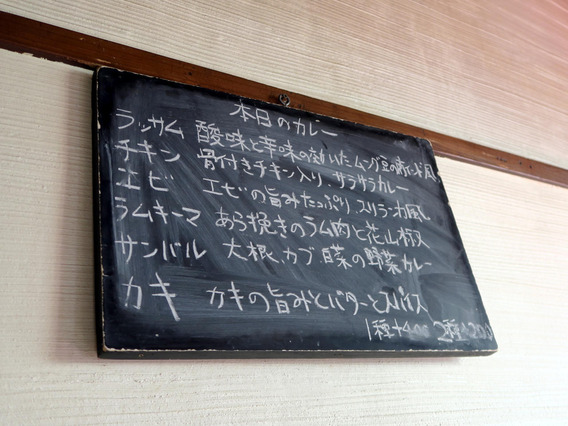 本日のカレー
ラッサム 酸味と辛味の効いたムング豆の南インド風
チキン 骨付きチキン入り、サラサラカレー
エビ エビの旨みたっぷり スリランカ風
ラムキーマ あら挽きのラム肉と花山椒
サンバル 大根、カブ 白菜の野菜カレー
カキ カキの旨みとバターとスパイス
1種+400 2種